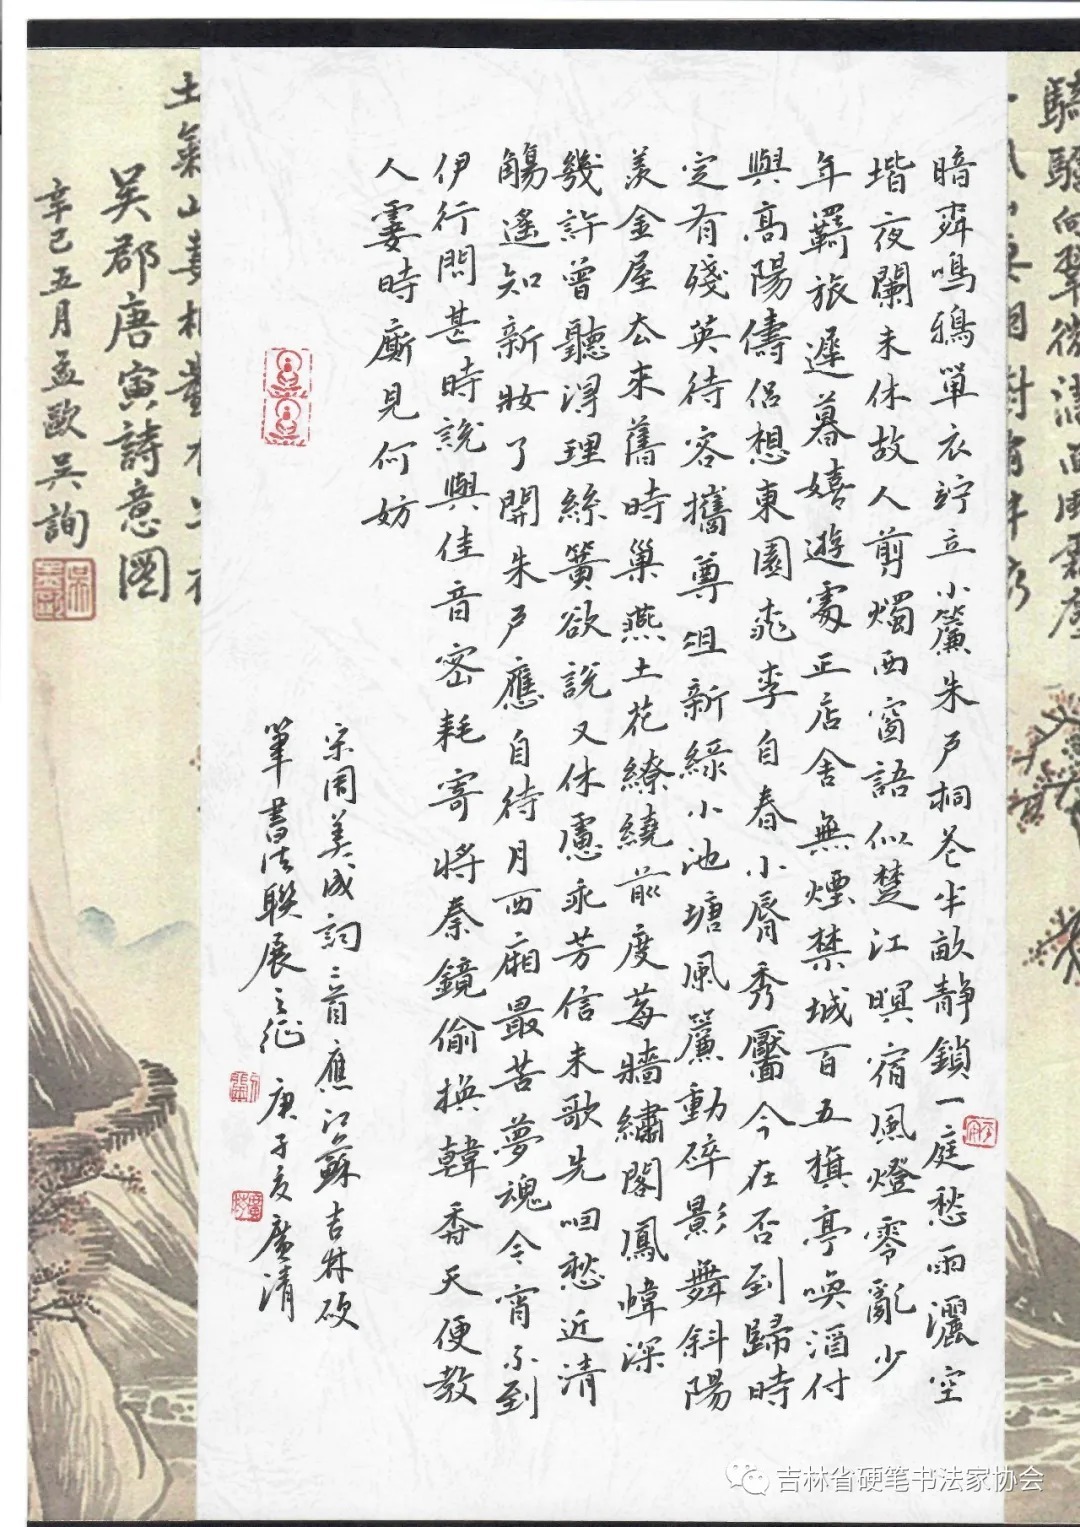 暗柳鳴鴉單衣竚立小簾朱戶桐花半畝靜鎖一庭愁雨灑空
堦夜闌未休故人剪燭西窗語似楚江暝宿風燈零亂少
年羇旅遲暮嬉遊處正店舍無煙禁城百五旗亭喚酒付
與高陽儔侶想東園桃李自春小脣秀靨今在否到歸時
定有殘英待客攜尊俎新綠小池塘風簾動碎影舞斜陽
羨金屋去來舊時巢燕土花繚繞前度莓牆繡閣鳳幃深
幾許曾聽得理絲簧欲說又休慮乖芳信未歌先咽愁近清
觴遙知新妝了開朱戶應自待月西廂最苦夢魂今宵不到
伊行問甚時說與佳音密耗寄將秦鏡偷換韓香天便教
人霎時廝見何妨
宋周美成詞二首應江蘇吉林硬
筆書法聯展之征 庚子夏廣清
吳郡唐寅詩意圖
辛己五月孟歐吳詢
吉林省硬笔书法家协会